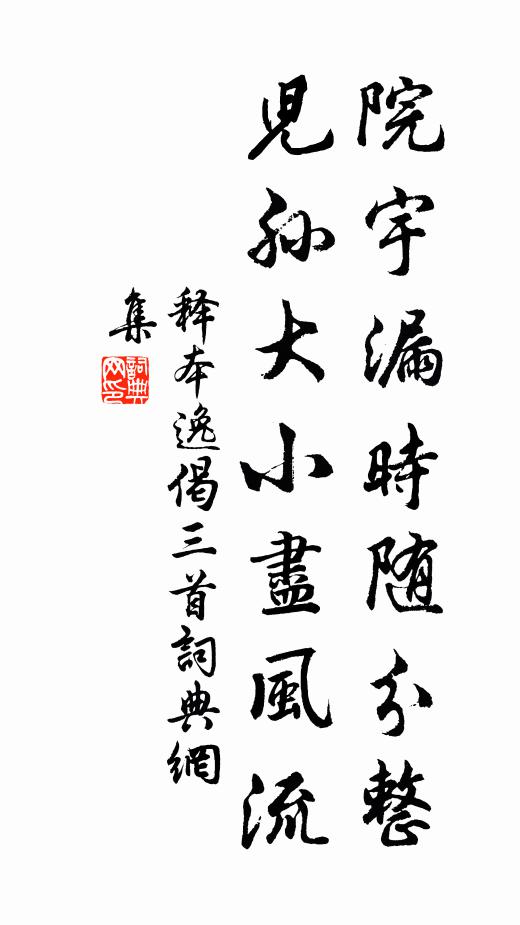 院宇漏時随分整
児孫大小盡風流
释本逸偈三首詞典網
集
詞典
网印